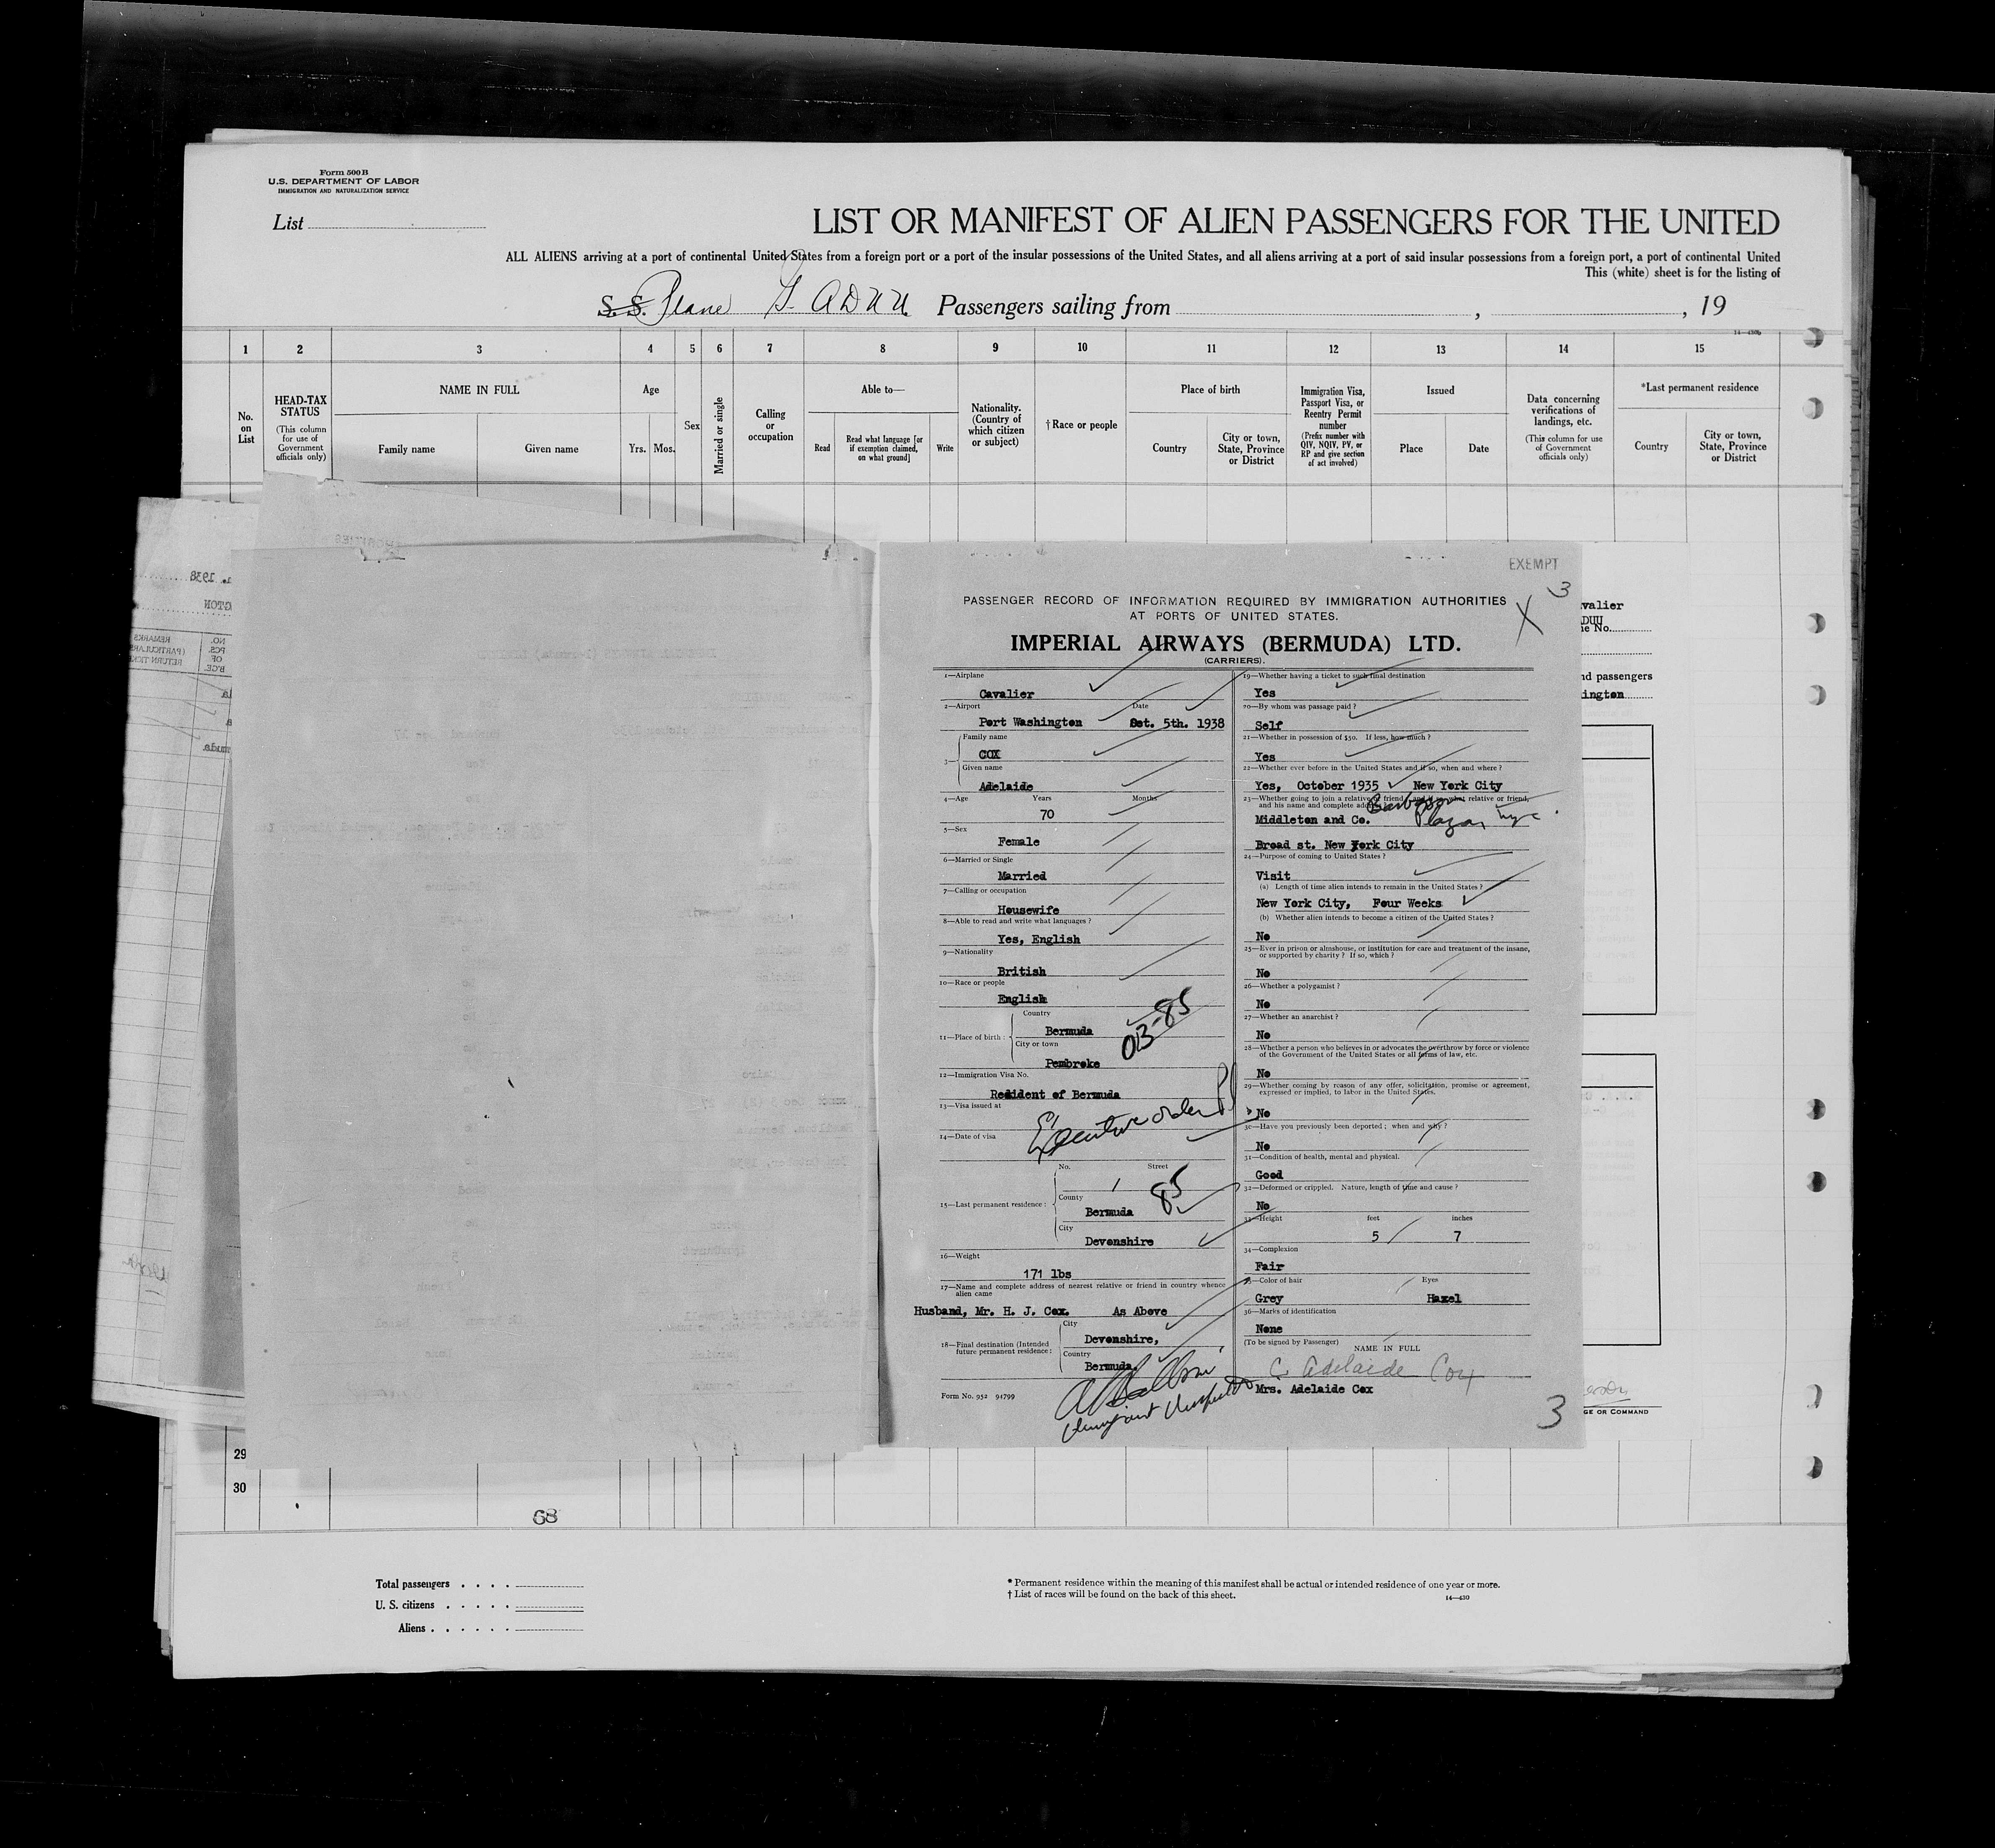 Form 500 B
U.S. DEPARTMENT OF LABOR
IMMIGRATION AND NATURALIZATION SERVICE
List
LIST OR MANIFEST OF ALIEN PASSENGERS FOR THE UNITED
ALL ALIENS arriving at a port of continental United States from a foreign port or a port of the insular possessions of the United States, and all aliens arriving at a port of said insular possessions from a foreign port, a port of continental United
This (white) sheet is for the listing of
S.S. Plane G. ADUU Passengers sailing from , , 19
14—430b
1 2 3 4 5 6 7 8 9 10 11 12 13 14 15
No. on List
HEAD-TAX STATUS
(This column for use of Government officials only)
NAME IN FULL
Family name Given name
Age
Yrs. Mos.
Sex
Married or single
Calling or occupation
Able to—
Read
Read what language [or if exemption claimed, on what ground]
Write
Nationality. (Country of which citizen or subject)
† Race or people
Place of birth
Country
City or town, State, Province or District
Immigration Visa, Passport Visa, or Reentry Permit number
(Prefix number with QIV, NQIV, PV, or RP and give section of act involved)
Issued
Place Date
Data concerning verifications of landings, etc.
(This column for use of Government officials only)
*Last permanent residence
Country
City or town, State, Province or District
EXEMPT
3
X
PASSENGER RECORD OF INFORMATION REQUIRED BY IMMIGRATION AUTHORITIES
AT PORTS OF UNITED STATES.
IMPERIAL AIRWAYS (BERMUDA) LTD.
(CARRIERS).
1—Airplane
Cavalier
2—Airport Date
Port Washington Oct. 5th. 1938
3—
Family name
COX
Given name
Adelaide
4—Age Years Months
70
5—Sex
Female
6—Married or Single
Married
7—Calling or occupation
Housewife
8—Able to read and write what languages ?
Yes, English
9—Nationality
British
10—Race or people
English
11—Place of birth :
Country
Bermuda
City or town
Pembroke
013-85
12—Immigration Visa No.
Resident of Bermuda
13—Visa issued at
Executive order
14—Date of visa
No. Street
15—Last permanent residence :
County
Bermuda
85
City
Devonshire
16—Weight
171 lbs
17—Name and complete address of nearest relative or friend in country whence
alien came
Husband, Mr. H. J. Cox. As Above
18—Final destination (Intended
future permanent residence :
City
Devonshire,
Country
Bermuda.
Form No. 952 94799
19—Whether having a ticket to such final destination
Yes
20—By whom was passage paid ?
Self
21—Whether in possession of $50. If less, how much ?
Yes
22—Whether ever before in the United States and if so, when and where ?
Yes, October 1935 New York City
23—Whether going to join a relative or friend, and if so, what relative or friend,
and his name and complete address
Middleton and Co. Plaza, nyc.
Broad st. New York City
24—Purpose of coming to United States ?
Visit
(a) Length of time alien intends to remain in the United States ?
New York City, Four Weeks
(b) Whether alien intends to become a citizen of the United States ?
No
25—Ever in prison or almshouse, or institution for care and treatment of the insane,
or supported by charity ? If so, which ?
No
26—Whether a polygamist ?
No
27—Whether an anarchist ?
No
28—Whether a person who believes in or advocates the overthrow by force or violence
of the Government of the United States or all forms of law, etc.
No
29—Whether coming by reason of any offer, solicitation, promise or agreement,
expressed or implied, to labor in the United States.
No
30—Have you previously been deported ; when and why ?
No
31—Condition of health, mental and physical.
Good
32—Deformed or crippled. Nature, length of time and cause ?
No
33—Height feet inches
5 7
34—Complexion
Fair
35—Color of hair Eyes
Grey Hazel
36—Marks of identification
None
(To be signed by Passenger)
NAME IN FULL
C Adelaide Cox
Mrs. Adelaide Cox
3
valier
ADUU
ne No.
nd passengers
ington
GE OR COMMAND
29
30
68
Total passengers
U. S. citizens
Aliens
* Permanent residence within the meaning of this manifest shall be actual or intended residence of one year or more.
† List of races will be found on the back of this sheet.
14—430